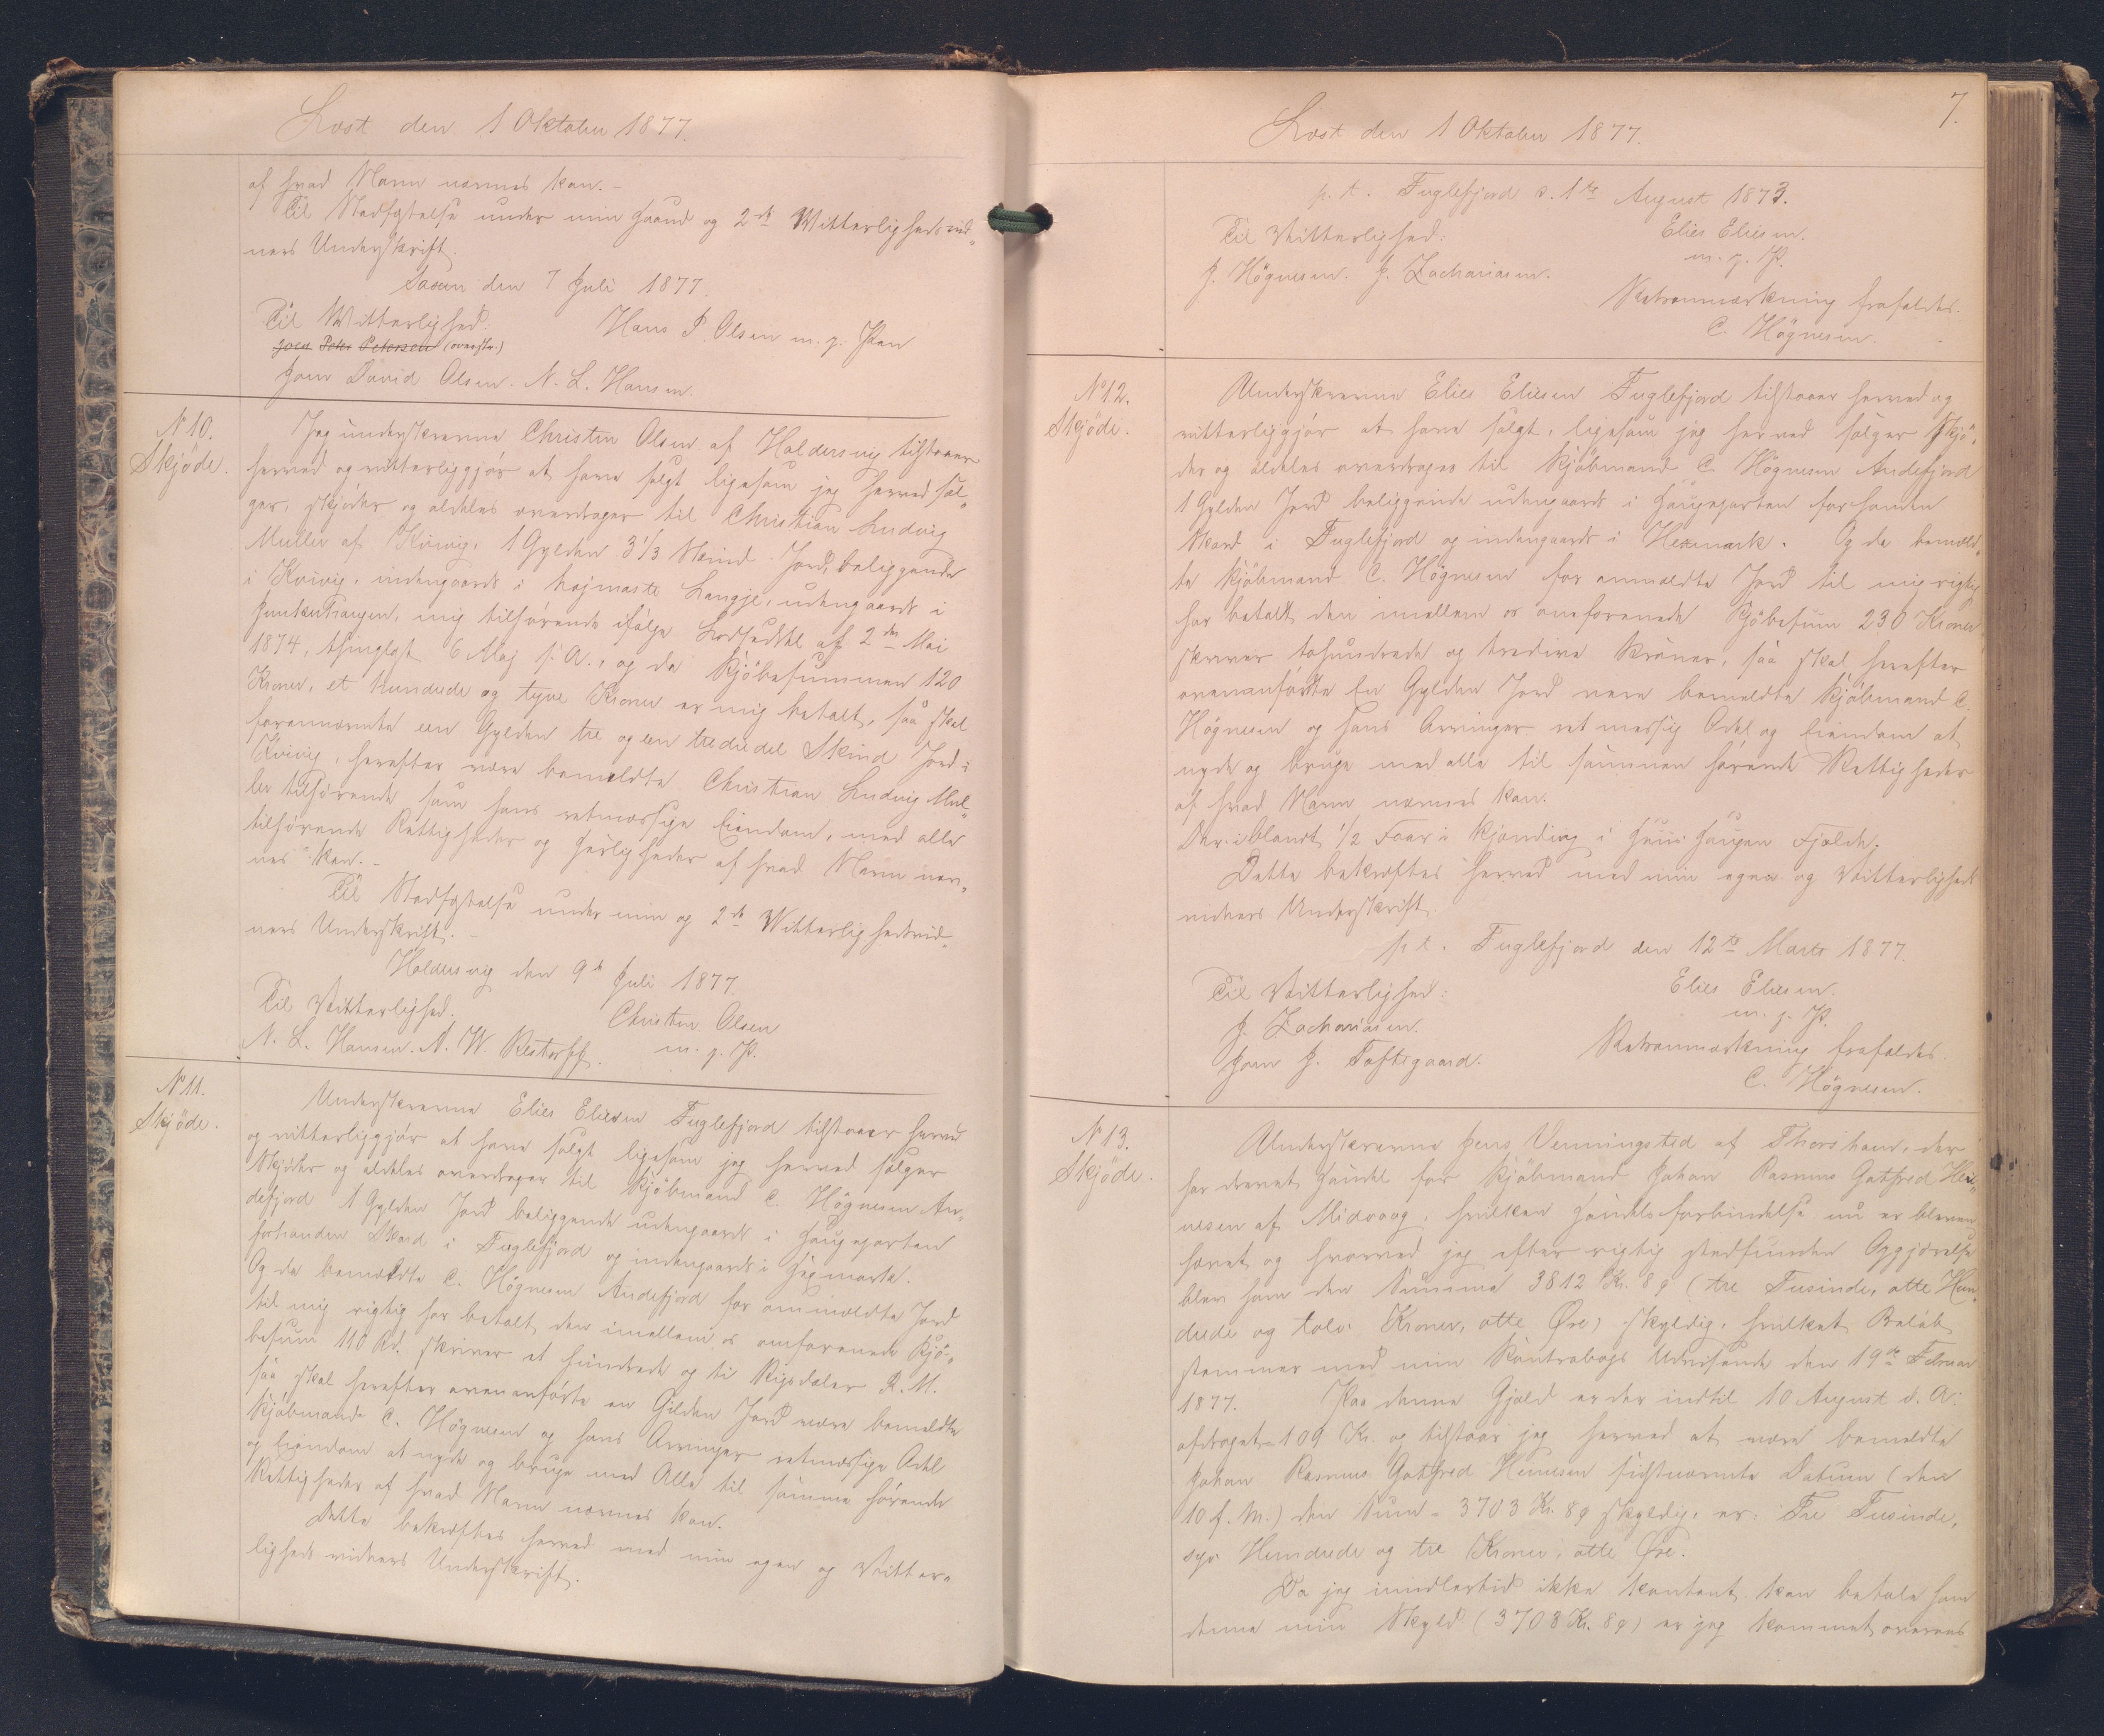 Læst den 1 Oktober 1877.
af hvad Navn nævnes kan. –
Til Stadfæstelse under min Haand og 2de Witterlighedsvid„
ners Underskrift.
Saxen den 7 Juli 1877.
Til Witterlighed. Hans P. Olsen m. p. Pen
Joen Peter Petersen (overstr.)
Joen David Olsen. N. L. Hansen.
No 10.
Skjöde.
Jeg underskrevne Christen Olsen af Haldersvig tilstaaer
herved og vitterliggjör at have solgt ligesom jeg herved sæl„
ger, skjöder og aldeles overdrager til Christian Ludvig
Muller af Kvivig, 1 Gylden 3 1/3 Skind Jord, beliggende
i Kvivig, indengaards i Langje, udengaards i
mig tilhörende ifölge Lodseddel af 2den Mai
1874, thinglæst 6 Maj s. A., og da Kjöbesummen 120
Kroner, et hundrede og tyve Kroner er mig betalt, saa skal
forannævnte een Gylden tre og een trediedel Skind Jord i
Kvivig, herefter være bemeldte Christian Ludvig Mul„
ler tilhörende som hans retmæssige Eiendom, med alle
tilhörende Rettigheder og Herligheder af hvad Navn næv„
nes kan. –
Til Stadfæstelse under min og 2de Witterlighedsvid„
ners Underskrift. –
Haldersvig den 9de Juli 1877.
Til Vitterlighed. Christen Olsen
N. L. Hansen. A. W. Restorff. m. p. P.
No 11.
Skjöde.
Underskrevne Elies Eliesen Fuglefjord tilstaaer herved
og vitterliggjör at have solgt ligesom jeg herved sælger
Skjöder og aldeles overdrager til Kjöbmand C. Högnesen An„
defjord 1 Gylden Jord beliggende udengaards i Haugeparten
forhanden Skard i Fuglefjord og indengaards i
Og da bemældte C. Högnesen Andefjord for anmældte Jord
til mig rigtig har betalt den imellem os omforenede Kjö„
besum 110 Rd. skriver et hundrede og ti Rigsdaler R. M.
saa skal herefter ovenanförte en Gilden Jord være bemeldte
Kjöbmand C. Högnesen og hans Arvinger retmæssige Odel
og Eiendom at nyde og bruge med Alle til samme hörende
Rettigheder af hvad Navn nævnes kan.
Dette bekræftes herved med min egen og Vitter„
ligheds vidners Underskrift.
7.
Læst den 1 Oktober 1877.
p. t. Fuglefjord d. 1te August 1873.
Til Vitterlighed: Elies Eliesen.
J. Högnesen. J. Zachariasen. m. p. P.
Retranmærkning frafaldes.
C. Högnesen.
No 12.
Skjöde.
Underskrevne Elies Eliesen Fuglefjord tilstaaer herved og
vitterliggjör at have solgt, ligesom jeg herved sælger Skjö„
der og aldeles overdrager til Kjöbmand C. Högnesen Andefjord
1 Gylden Jord beliggende udengaards i Haugeparten forhanden
Skard i Fuglefjord og indengaards i Hexmark. Og da bemeld„
te Kjöbmand C. Högnesen for anmeldte Jord til mig rigtig
har betalt den imellem os omforenede Kjöbesum 230 Kroner
skriver tohundrede og tredive Kroner, saa skal herefter
ovenanförte En Gylden Jord være bemeldte Kjöbmand C.
Högnesen og hans Arvinger retmæssig Odel og Eiendom at
nyde og bruge med alle til sammen hörende Rettigheder
af hvad Navn nævnes kan.
Der iblandt 1/2 Faar i Kjænding i Haugen Fjelde.
Dette bekræftes herved med min egen og Vitterligheds
vidners Underskrift.
p. t. Fuglefjord den 12te Marts 1877.
Til Vitterlighed: Elies Eliesen.
J. Zachariasen. m. p. P.
Joen J. Toftegaard. Retranmærkning frafaldes.
C. Högnesen.
No 13.
Skjöde.
Underskrevne Jens Venningsted af Thorshavn, der
har drevet Handel for Kjöbmand Johan Rasmus Gotfred Hei„
nesen af Midvaag, hvilken Handelsforbindelse nu er bleven
hævet og hvorved jeg efter rigtig stedfunden Opgjörelse
blev ham den Summa 3812 Kr. 8 ø (tre Tusinde, otte Hun„
drede og tolv Kroner, otte Øre) skyldig, hvilket Belöb
stemmer med min Kontrabogs Udvisende den 19de Februar
1877. Paa denne Gjæld er der indtil 10 August d. A.
afdraget = 109 Kr. og tilstaar jeg herved at være bemeldte
Johan Rasmus Gotfred Heinesen sidstnævnte Datum (den
10 f. M.) den Sum = 3703 Kr. 8 ø skyldig, er: Tre Tusinde,
syv Hundrede og tre Kroner, otte Øre.
Da jeg imidlertid ikke kontant kan betale ham
denne min Skyld (3703 Kr. 8 ø) er jeg kommet overens